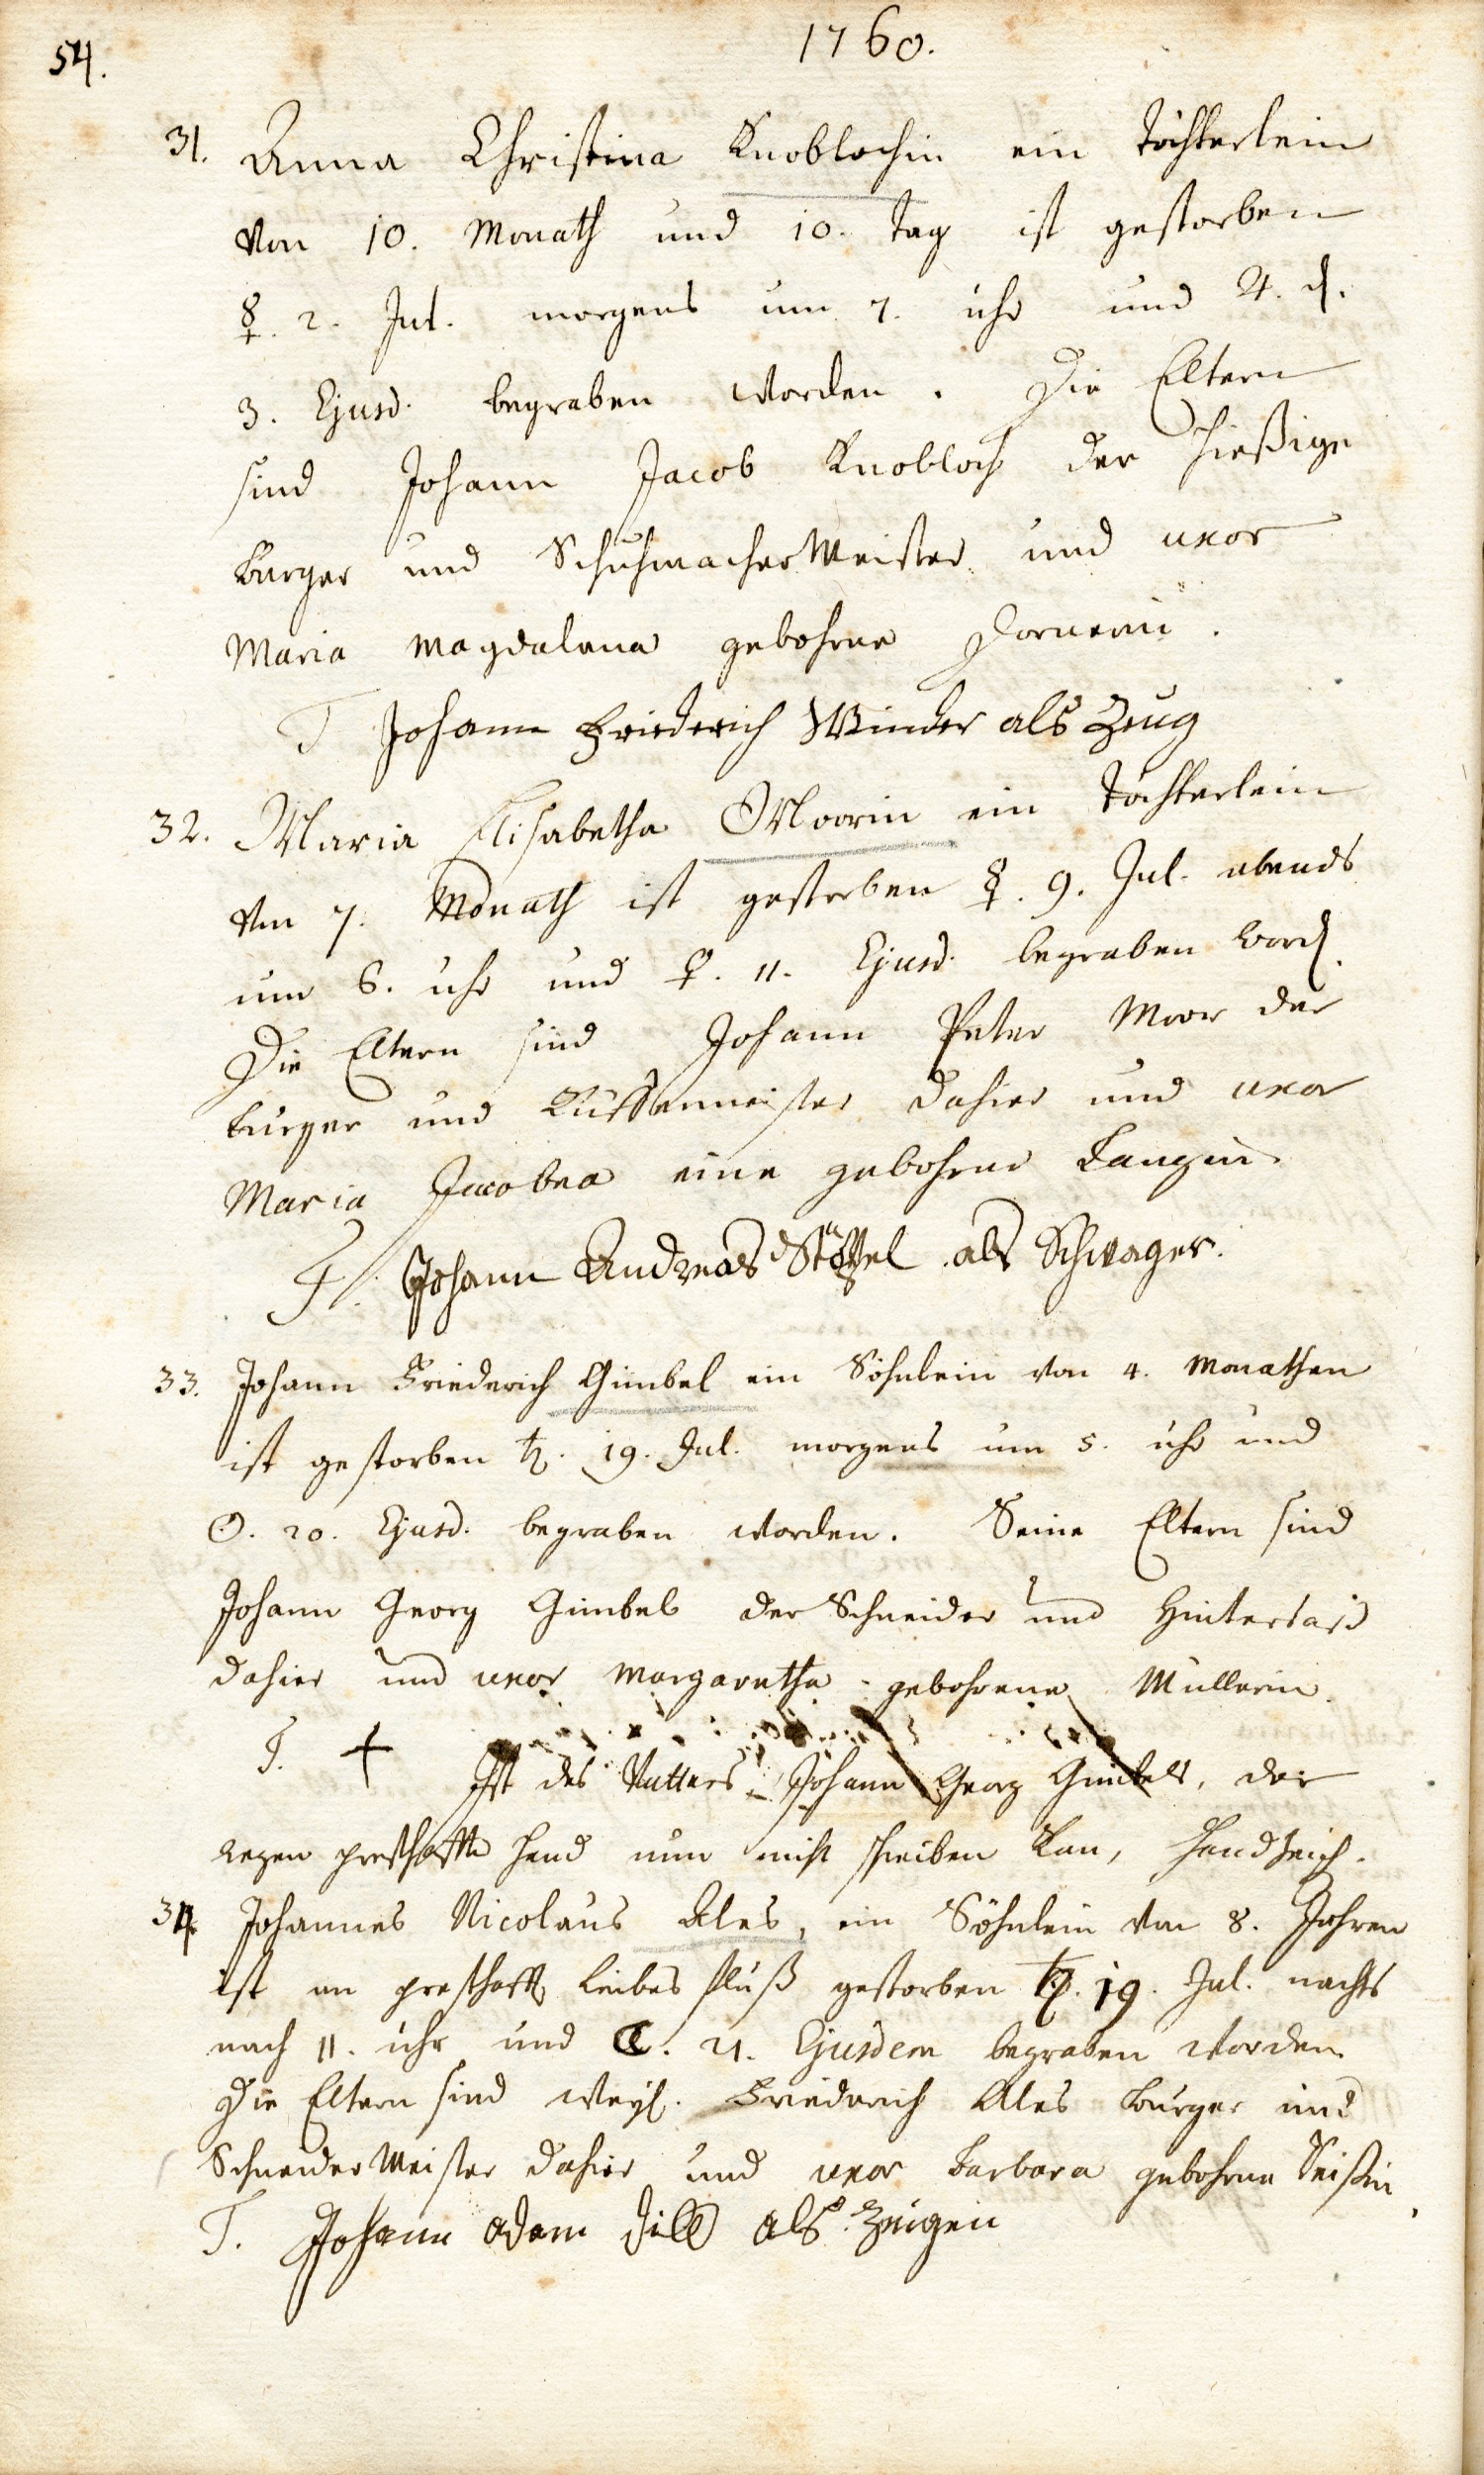 54.
1760.
31. Anna Christina Knoblochin ein Töchterlein
von 10. Monath und 10. Tag ist gestorben
☿. 2. Jul. morgens um 7. uhr und ♃. d.
3. Ejusd. begraben worden. Die Eltern
sind Johann Jacob Knobloch der hießige
Burger und Schuhmacher Meister und uxor
Maria Magdalena gebohrne Dornerin.
T Johann Friederich Winder als Zeug
32. Maria Elisabetha Moorin ein Töchterlein
von 7. Monath ist gestorben ☿. 9. Jul. abends
um 6. uhr und ♀. 11. Ejusd. begraben word.
Die Eltern sind Johann Peter Moor der
burger und dahier und uxor
Maria Jacobea eine gebohrne Langin.
T. Johann Andreas Stößel als Schwager.
33. Johann Friederich Gimbel ein Söhnlein von 4. Monathen
ist gestorben ♄. 19. Jul. morgens um 5. uhr und
☉. 20. Ejusd. begraben worden. Seine Eltern sind
Johann Georg Gimbel der Schneider und Hintersaß
dahier und uxor Margaretha gebohrene Mullerin.
T. + Ist des Vatters Johann Georg Gimbels, der
wegen presthaffte Hand nun nicht schreiben kan, Handzeich.
34. Johannes Nicolaus Ales, ein Söhnlein von 8. Jahren
ist an presthafft. Leibes fluß gestorben ♄. 19. Jul. nachts
nach 11. uhr und ☾. 21. Ejusdem begraben worden.
Die Eltern sind weyl. Friederich Ales burger und
Schneider Meister dahier und uxor Barbara gebohrne
T. Johann adam Dill als Zeugen